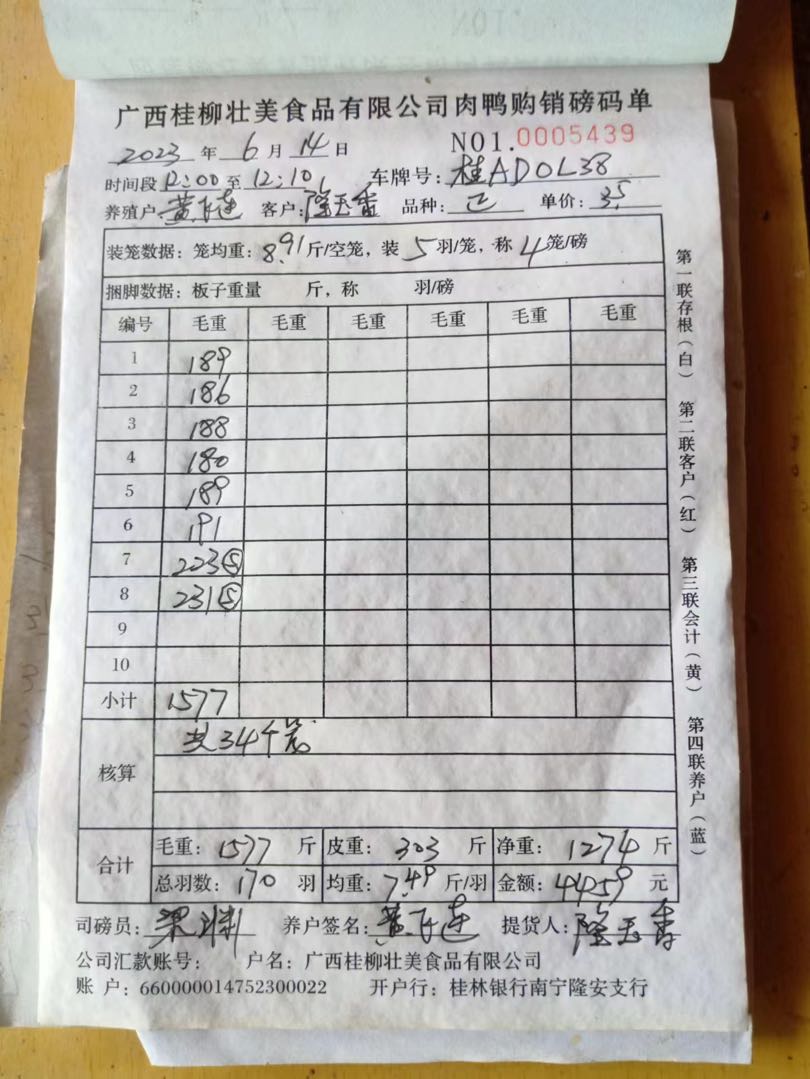 广西桂柳壮美食品有限公司肉鸭购销磅码单
2023 年 6 月 14 日 NO1.0005439
时间段 12:00 至 12:10 车牌号: 桂AD0L38
养殖户: 黄 莲 客户: 隆玉香 品种: 正 单价: 3.5
装笼数据: 笼均重: 8.91 斤/空笼, 装 5 羽/笼, 称 4 笼/磅
捆脚数据: 板子重量 斤, 称 羽/磅
编号 毛重 毛重 毛重 毛重 毛重 毛重
1 189
2 186
3 188
4 180
5 189
6 191
7 223⑤
8 231⑤
9
10
小计 1577
核算 共34个笼
合计 毛重: 1577 斤 皮重: 303 斤 净重: 1274 斤
总羽数: 170 羽 均重: 7.49 斤/羽 金额: 4459 元
司磅员: 梁 养户签名: 黄 莲 提货人: 隆玉香
公司汇款账号: 户名: 广西桂柳壮美食品有限公司
账 户: 660000014752300022 开户行: 桂林银行南宁隆安支行
第一联存根(白) 第二联客户(红) 第三联会计(黄) 第四联养户(蓝)